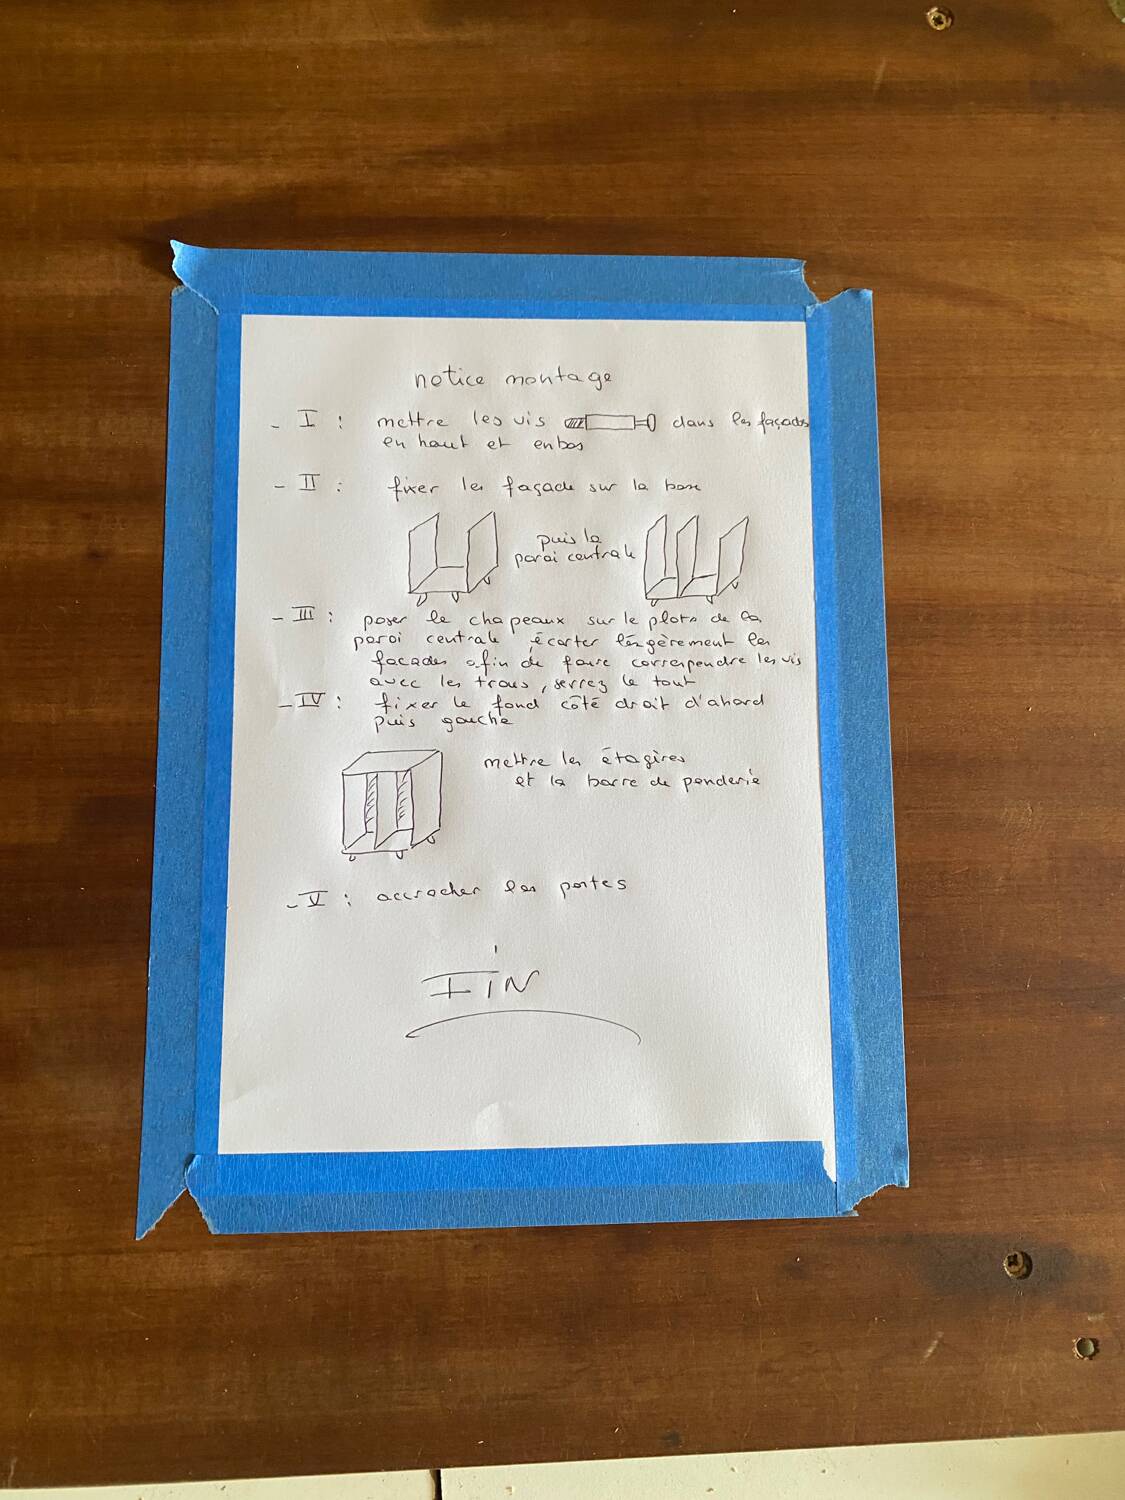 notice montage
- I : mettre les vis dans les façades
en haut et en bas
- II : fixer les façade sur la base
puis la
paroi centrale
- III : poser le chapeaux sur le plots de la
paroi centrale écarter légèrement les
façades afin de faire correspondre les vis
avec les trous, serrez le tout
- IV : fixer le fond côté droit d'abord
puis gauche
mettre les étagères
et la barre de penderie
- V : accrocher les portes
FiN